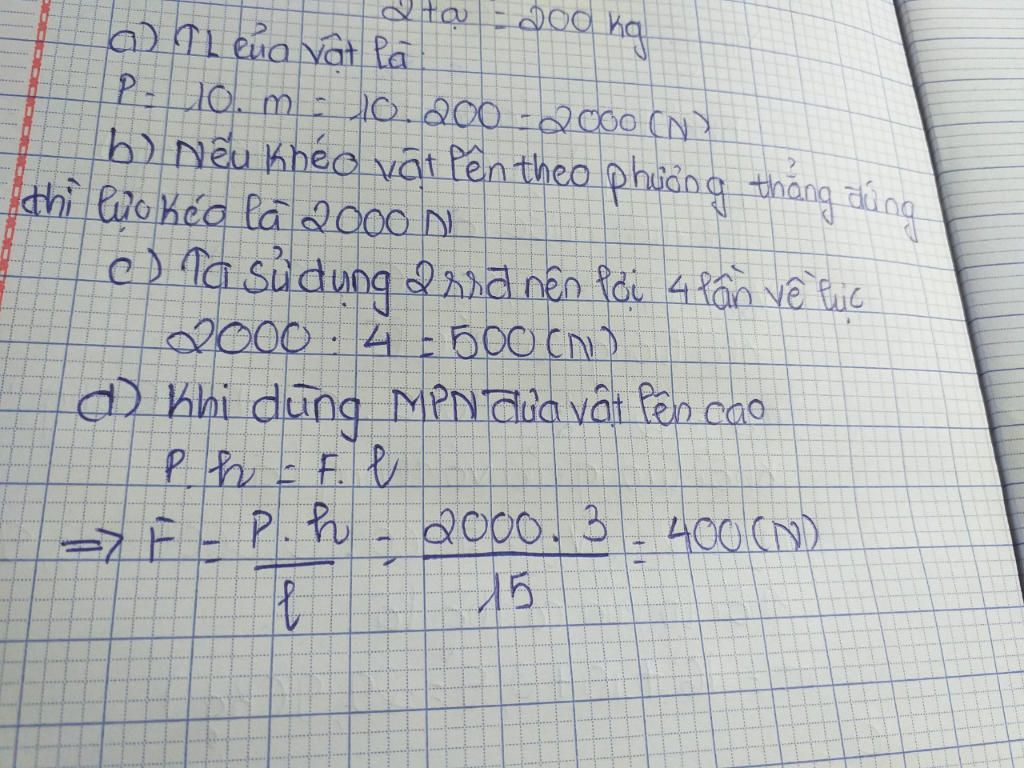 2 tạ = 200 kg
a) TL của vật là
P = 10. m = 10.200 = 2000 (N)
b) Nếu khéo vật lên theo phương thẳng đứng
thì lực kéo là 2000 N
c) Ta sử dụng 2 rrđ nên lợi 4 lần về lực
2000 : 4 = 500 (N)
d) Khi dùng MPN đưa vật lên cao
P. h = F. l
=> F = P. h / l = 2000. 3 / 15 = 400 (N)